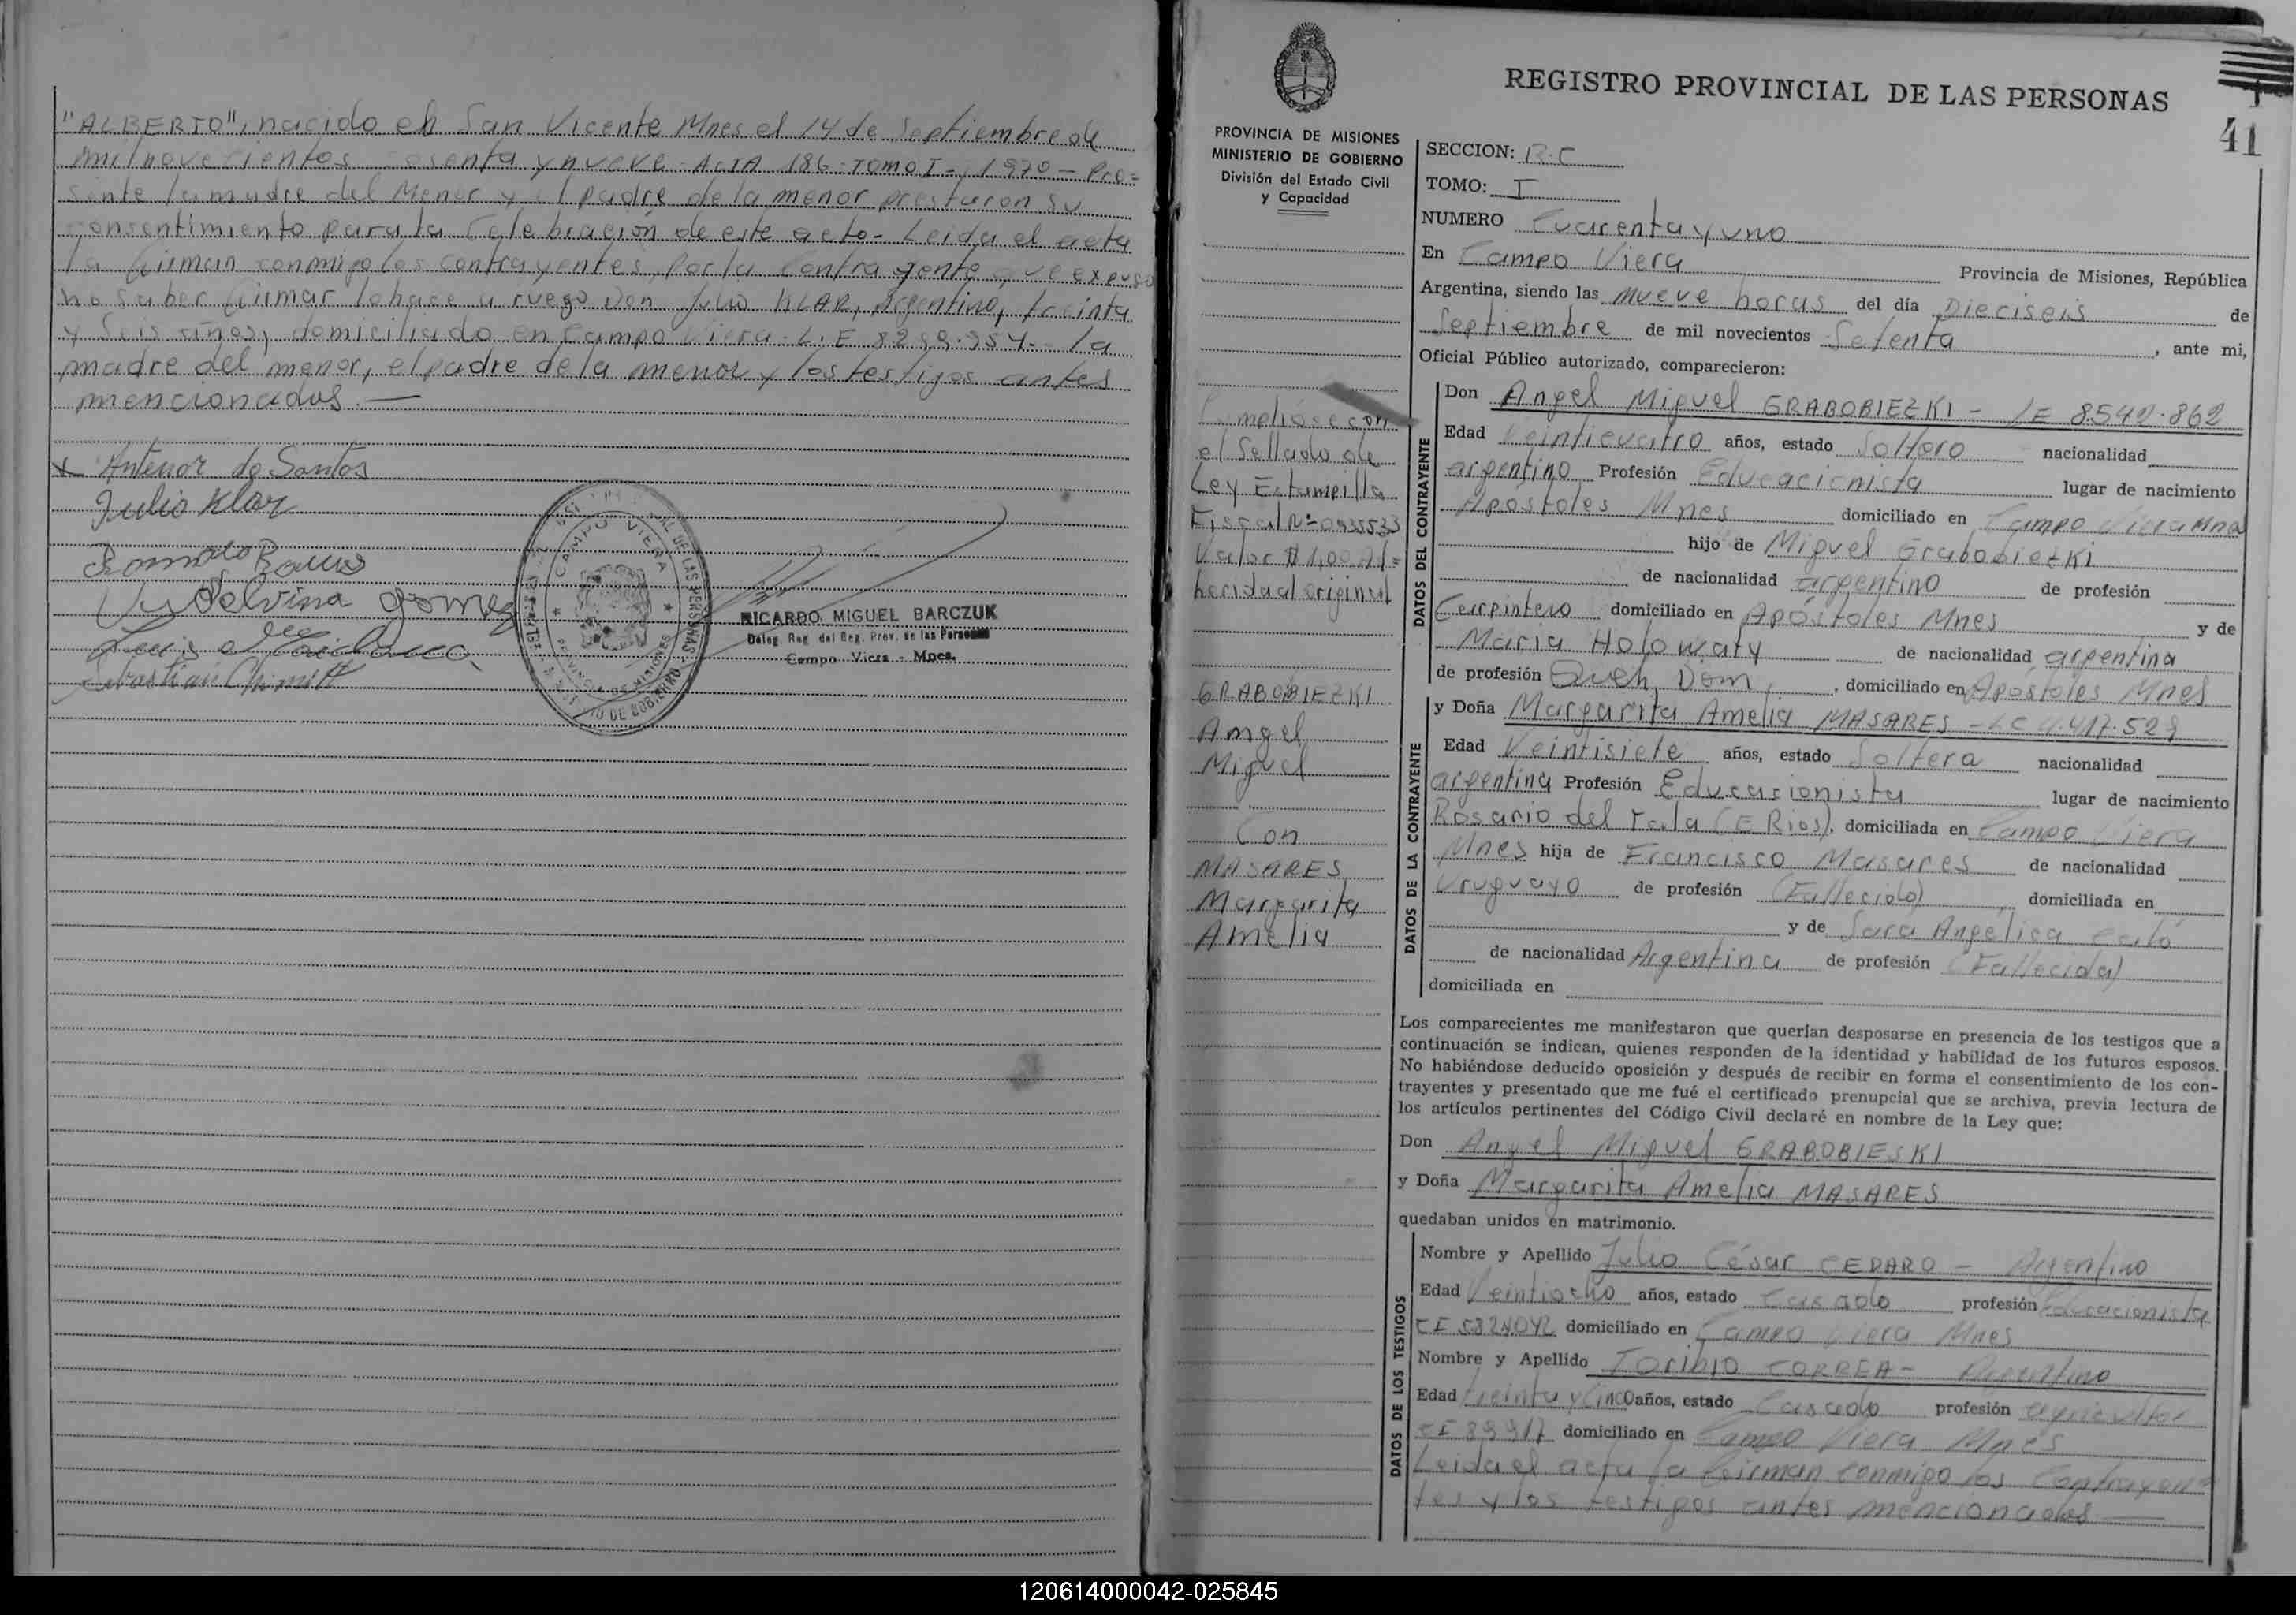 "ALBERTO", nacido en San Vicente Mnes el 14 de Septiembre de
mil novecientos sesenta y nueve - ACTA 186 - TOMO I - 1970 - Pre=
sente la madre del Menor y el padre de la menor prestaron su
consentimiento para la Celebración de este acto - Leida el acta
la firman conmigo los Contrayentes, Por la Contrayente que expuso
no saber firmar lo hace a ruego Don Julio KLAR, Argentino, treinta
y seis años, domiciliado en Campo Viera - L.E 8299.954 - la
madre del menor, el padre de la menor y los testigos antes
mencionados. —
x Antenor do Santos
Julio Klar
Delvina Gomez
CAMPO VIERA
PROVINCIA DE MISIONES
RICARDO MIGUEL BARCZUK
Deleg. Reg. del Reg. Prov. de las Personas
Campo Viera - Mnes.
REGISTRO PROVINCIAL DE LAS PERSONAS
41
PROVINCIA DE MISIONES
MINISTERIO DE GOBIERNO
División del Estado Civil
y Capacidad
Cumplióse con
el Sellado de
Ley Estampilla
Fiscal Nº 0935533
Valor $ 1,00 Ad=
heridad original
GRABOBIEZKI
Angel
Miguel
Con
MASARES
Margarita
Amelia
SECCION: B.C
TOMO: I
NUMERO Cuarenta y uno
En Campo Viera Provincia de Misiones, República
Argentina, siendo las nueve horas del día Dieciseis de
Septiembre de mil novecientos Setenta, ante mi,
Oficial Público autorizado, comparecieron:
DATOS DEL CONTRAYENTE
Don Angel Miguel GRABOBIEZKI - LE 8.542.862
Edad Veintícuatro años, estado Soltero nacionalidad
argentino Profesión Educacionista lugar de nacimiento
Apóstoles Mnes domiciliado en Campo Viera Mnes
hijo de Miguel Grabobiezki
de nacionalidad argentino de profesión
Carpintero domiciliado en Apóstoles Mnes y de
Maria Holowaty de nacionalidad argentina
de profesión Queh. Dom., domiciliado en Apóstoles Mnes
DATOS DE LA CONTRAYENTE
y Doña Margarita Amelia MASARES - LC 4.417.529
Edad Veintisiete años, estado Soltera nacionalidad
argentina Profesión Educacionista lugar de nacimiento
Rosario del Tala (E Rios), domiciliada en Campo Viera
Mnes hija de Francisco Masares de nacionalidad
Uruguayo de profesión (Fallecido), domiciliada en
y de Sara Angélica
de nacionalidad Argentina de profesión (Fallecida)
domiciliada en
Los comparecientes me manifestaron que querían desposarse en presencia de los testigos que a
continuación se indican, quienes responden de la identidad y habilidad de los futuros esposos.
No habiéndose deducido oposición y después de recibir en forma el consentimiento de los con-
trayentes y presentado que me fué el certificado prenupcial que se archiva, previa lectura de
los artículos pertinentes del Código Civil declaré en nombre de la Ley que:
Don Angel Miguel GRABOBIESKI
y Doña Margarita Amelia MASARES
quedaban unidos en matrimonio.
DATOS DE LOS TESTIGOS
Nombre y Apellido Julio César CEDARO - Argentino
Edad Veintiocho años, estado Casado profesión Educacionista
CI 5324042 domiciliado en Campo Viera Mnes
Nombre y Apellido Toribio CORREA - Argentino
Edad treinta y cinco años, estado Casado profesión agricultor
CI 89917 domiciliado en Campo Viera Mnes
Leida el acta la firman conmigo los Contrayen=
tes y los testigos antes mencionados —
120614000042-025845